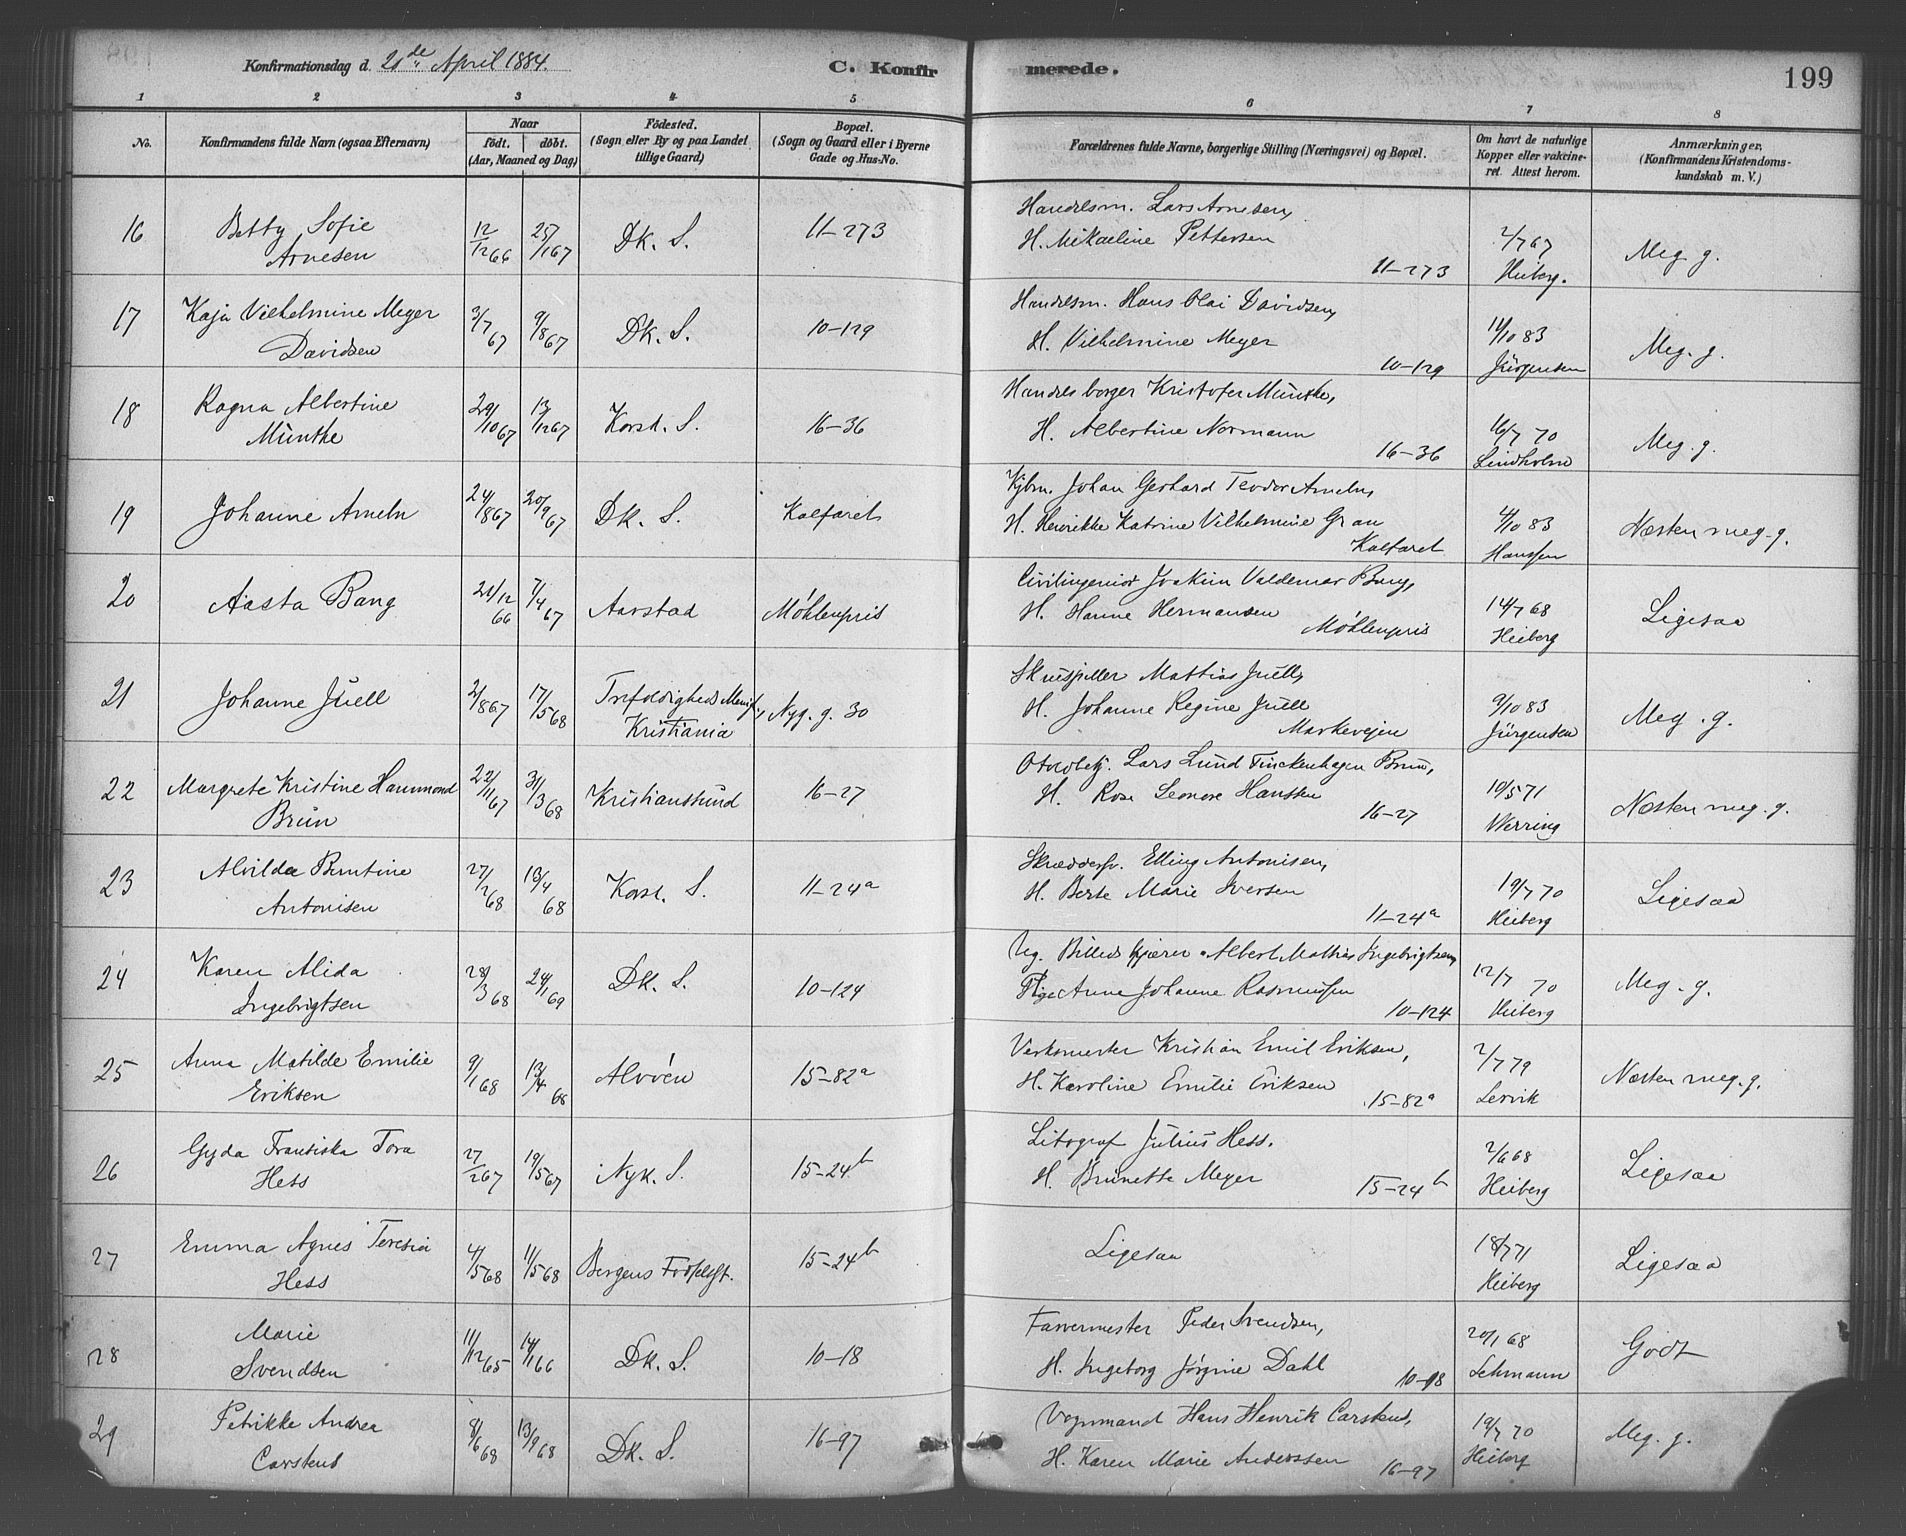 Konfirmationsdag d. 20de April 1884.
C. Konfirmerede.
199
1 2 3 4 5 6 7 8
No.
Konfirmandens fulde Navn (ogsaa Efternavn)
Naar
födt. döbt.
(Aar, Maaned og Dag)
Födested.
(Sogn eller By og paa Landet
tillige Gaard)
Bopæl.
(Sogn og Gaard eller i Byerne
Gade og Hus-No.
Forældrenes fulde Navne, borgerlige Stilling (Næringsvei) og Bopæl.
Om havt de naturlige
Kopper eller vakcine-
ret. Attest herom.
Anmærkninger.
(Konfirmandens Kristendoms-
kundskab m. V.)
16 Betty Sofie
Arnesen
12/12 66 25/1 67 Dk. S. 11-273
Handelsm. Lars Arnesen,
H. Mikaeline Pettersen
11-273
2/7 67
Heiberg.
Meg. g.
17 Kaja Vilhelmine Meyer
Davidsen
3/7 67 9/8 67 Dk. S. 10-129
Handelsm. Hans Olai Davidsen,
H. Vilhelmine Meyer
10-129
11/10 83
Jürgensen
Meg. g.
18 Ragna Albertine
Münthe
29/10 67 13/12 67 Korsk. S. 16-36
Handelsborger Kristofer Münthe,
H. Albertine Normann
16-36
16/7 70
Lindholm
Meg. g.
19 Johanne Ameln
24/8 67 20/9 67 Dk. S. Kalfaret
Kjbm. Johan Gerhard Teodor Ameln,
H. Henrikke Katrine Vilhelmine Gran
Kalfaret
4/10 83
Hanssen
Næsten meg. g.
20 Aasta Bang
21/12 66 7/4 67 Aarstad Møhlenpris
Civilingeniør Joakim Valdemar Bang,
H. Hanne Hermansen
Møhlenpris
14/7 68
Heiberg
Ligesaa
21 Johanne Juell
2/8 67 17/5 68 Trefoldigheds Menigh.,
Kristiania
Nyg. g. 30
Skuespiller Mattias Juell,
H. Johanne Regine Juell
Markevejen
9/10 83
Jürgensen
Meg. g.
22 Margrete Kristine Hammond
Brun
22/11 67 31/3 68 Kristianssund 16-27
Lars Lund Finckenhagen Brun,
H. Rosa Leonore Hanssen
16-27
10/5 71
Werring
Næsten meg. g.
23 Alvilda Bentine
Antonisen
27/2 68 13/4 68 Korsk. S. 11-24a
Skræddersv. Elling Antonisen,
H. Berte Marie Iversen
11-24a
19/7 70
Heiberg
Ligesaa
24 Karen Alida
Ingebrigtsen
28/3 68 24/1 69 Dk. S. 10-124
Ug. Billedskjærer Albert Mathias Ingebrigtsen,
Pige Anne Johanne Rasmussen
10-124
12/7 70
Heiberg
Meg. g.
25 Anna Matilde Emilie
Eriksen
9/1 68 13/4 68 Alvöen 15-82a
Verksmester Kristian Emil Eriksen,
H. Karoline Emilie Eriksen
15-82a
2/7 79
Lervik
Næsten meg. g.
26 Gyda Fransiska Tora
Hess
27/2 67 19/5 67 Nyk. S. 15-24b
Litograf Julius Hess.
H. Brunette Meyer
15-24b
2/6 68
Heiberg
Ligesaa
27 Emma Agnes Teresia
Hess
4/5 68 11/5 68 Bergens Fødselsst. 15-24b
Ligesaa
18/7 71
Heiberg
Ligesaa
28 Marie
Svendsen
11/12 65 14/1 66 Dk. S. 10-18
Farvermester Peder Svendsen,
H. Ingeborg Jørgine Dahl
10-18
20/1 68
Lehmann
Godt
29 Petrikke Andrea
Carstens
8/6 68 13/9 68 Dk. S. 16-97
Vognmand Hans Henrik Carstens,
H. Karen Marie Anderssen
16-97
19/7 70
Heiberg
Meg. g.